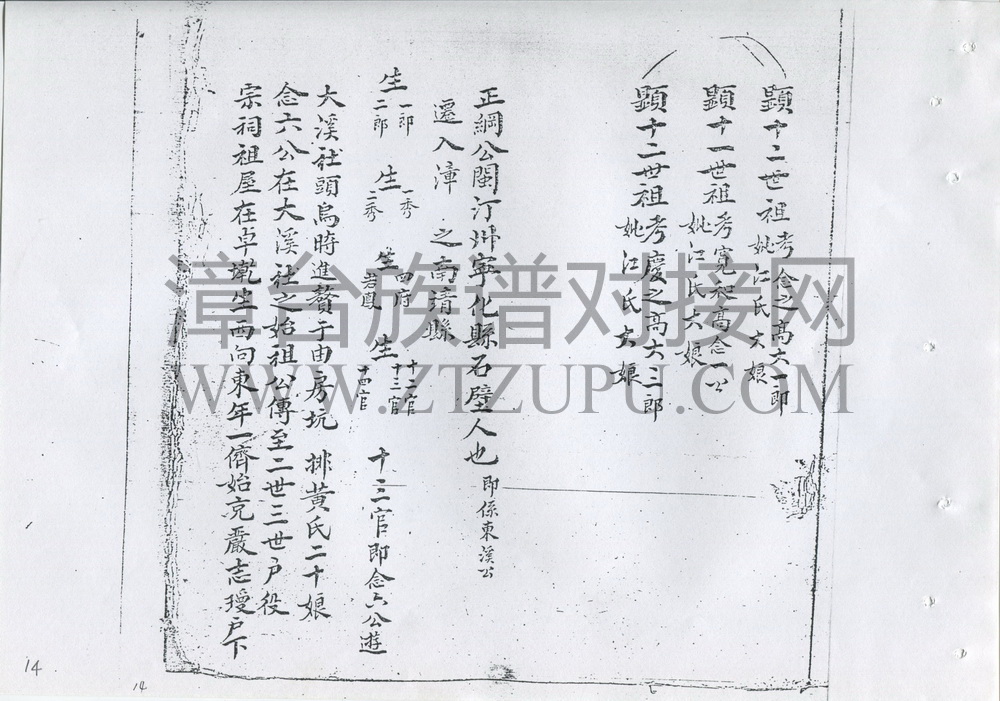 顕十二世祖考念之高大一郎
妣江氏大娘
顕十一世祖考寬和高念一公
妣江氏大娘
顕十二世祖考慶之高大三郎
妣江氏大娘
正綱公閩汀州寧化縣石壁人也 即係東溪公
遷入漳 之南靖縣
生 一郎 二郎 生 一秀 二秀 生 四府 岩鳳 生 十二官 十三官 十四官 十三官即念六公遊
大溪社頭烏時進贅于由房坑 排黃氏二十娘
念六公在大溪社之始祖公傳至二世三世户役
宗祠祖屋在卓 坐西向東年一儕始 嚴志 户下
漳台族谱对接网
WWW.ZTZUPU.COM
14
14